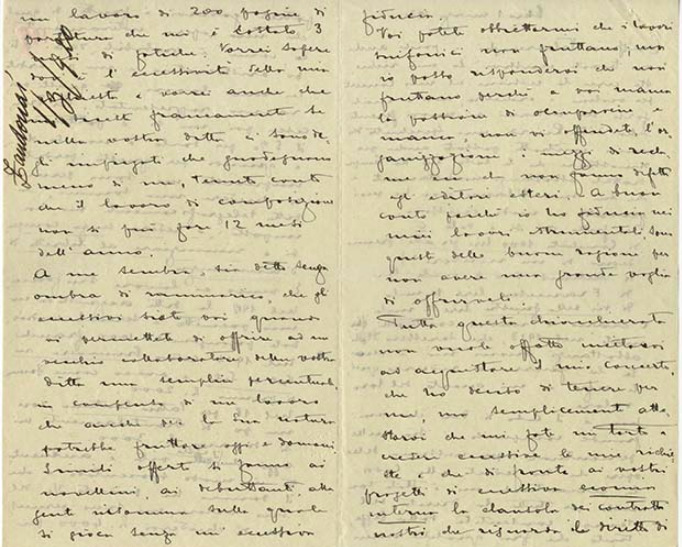 un lavoro di 200 pagine di
partitura che mi è costato 3
mesi di fatiche. Vorrei sapere
dov'è l'eccessività della mia
richiesta e vorrei anche che
mi diceste francamente se
nella vostra ditta ci sono de-
gli impiegati che guadagnano
meno di me, tenuto conto
che il lavoro di composizione
non si può fare 12 mesi
dell'anno.
A me sembra, sia detto senza
ombra di rammarico, che gli
eccessivi siate voi quando
vi permettete di offrire ad un
vecchio collaboratore della vostra
ditta una semplice percentuale
in compenso di un lavoro
che anche per la sua natura
potrebbe fruttare oggi e domani.
Simili offerte si fanno ai
novellini, ai debuttanti, alla
gente insomma sulla quale
si gioca senza un'eccessiva
fiducia.
Voi potete obbiettarmi che i lavori
sinfonici non fruttano; ma
io posso rispondervi che non
fruttano perchè a voi manca
la passione di occuparvene e
manca non vi offendete, l'or-
ganizzazione i mezzi di recla-
me che non fanno difetto
agli editori esteri. A buon
conto perchè io ho fiducia nei
miei lavori strumentali, sono
queste delle buone ragioni per
non avere una grande voglia
di offrirveli.
Tutta questa chiacchierata
non vuole affatto invitarvi
ad acquistare il mio concerto,
che ho deciso di tenere per
me, ma semplicemente atte-
starvi che mi fate un torto a
credere eccessive le mie richie-
ste e che di fronte ai vostri
progetti di eccessiva economia
interna la clausola dei contratti
nostri che riguarda la diritti di